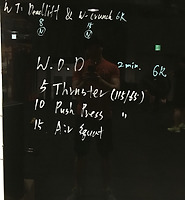 & W. Crunch 6R
8 15
N N
W.O.D 2 min. 6R
5 Thruster (115/65)
10 Push Press "
15 Air Squat